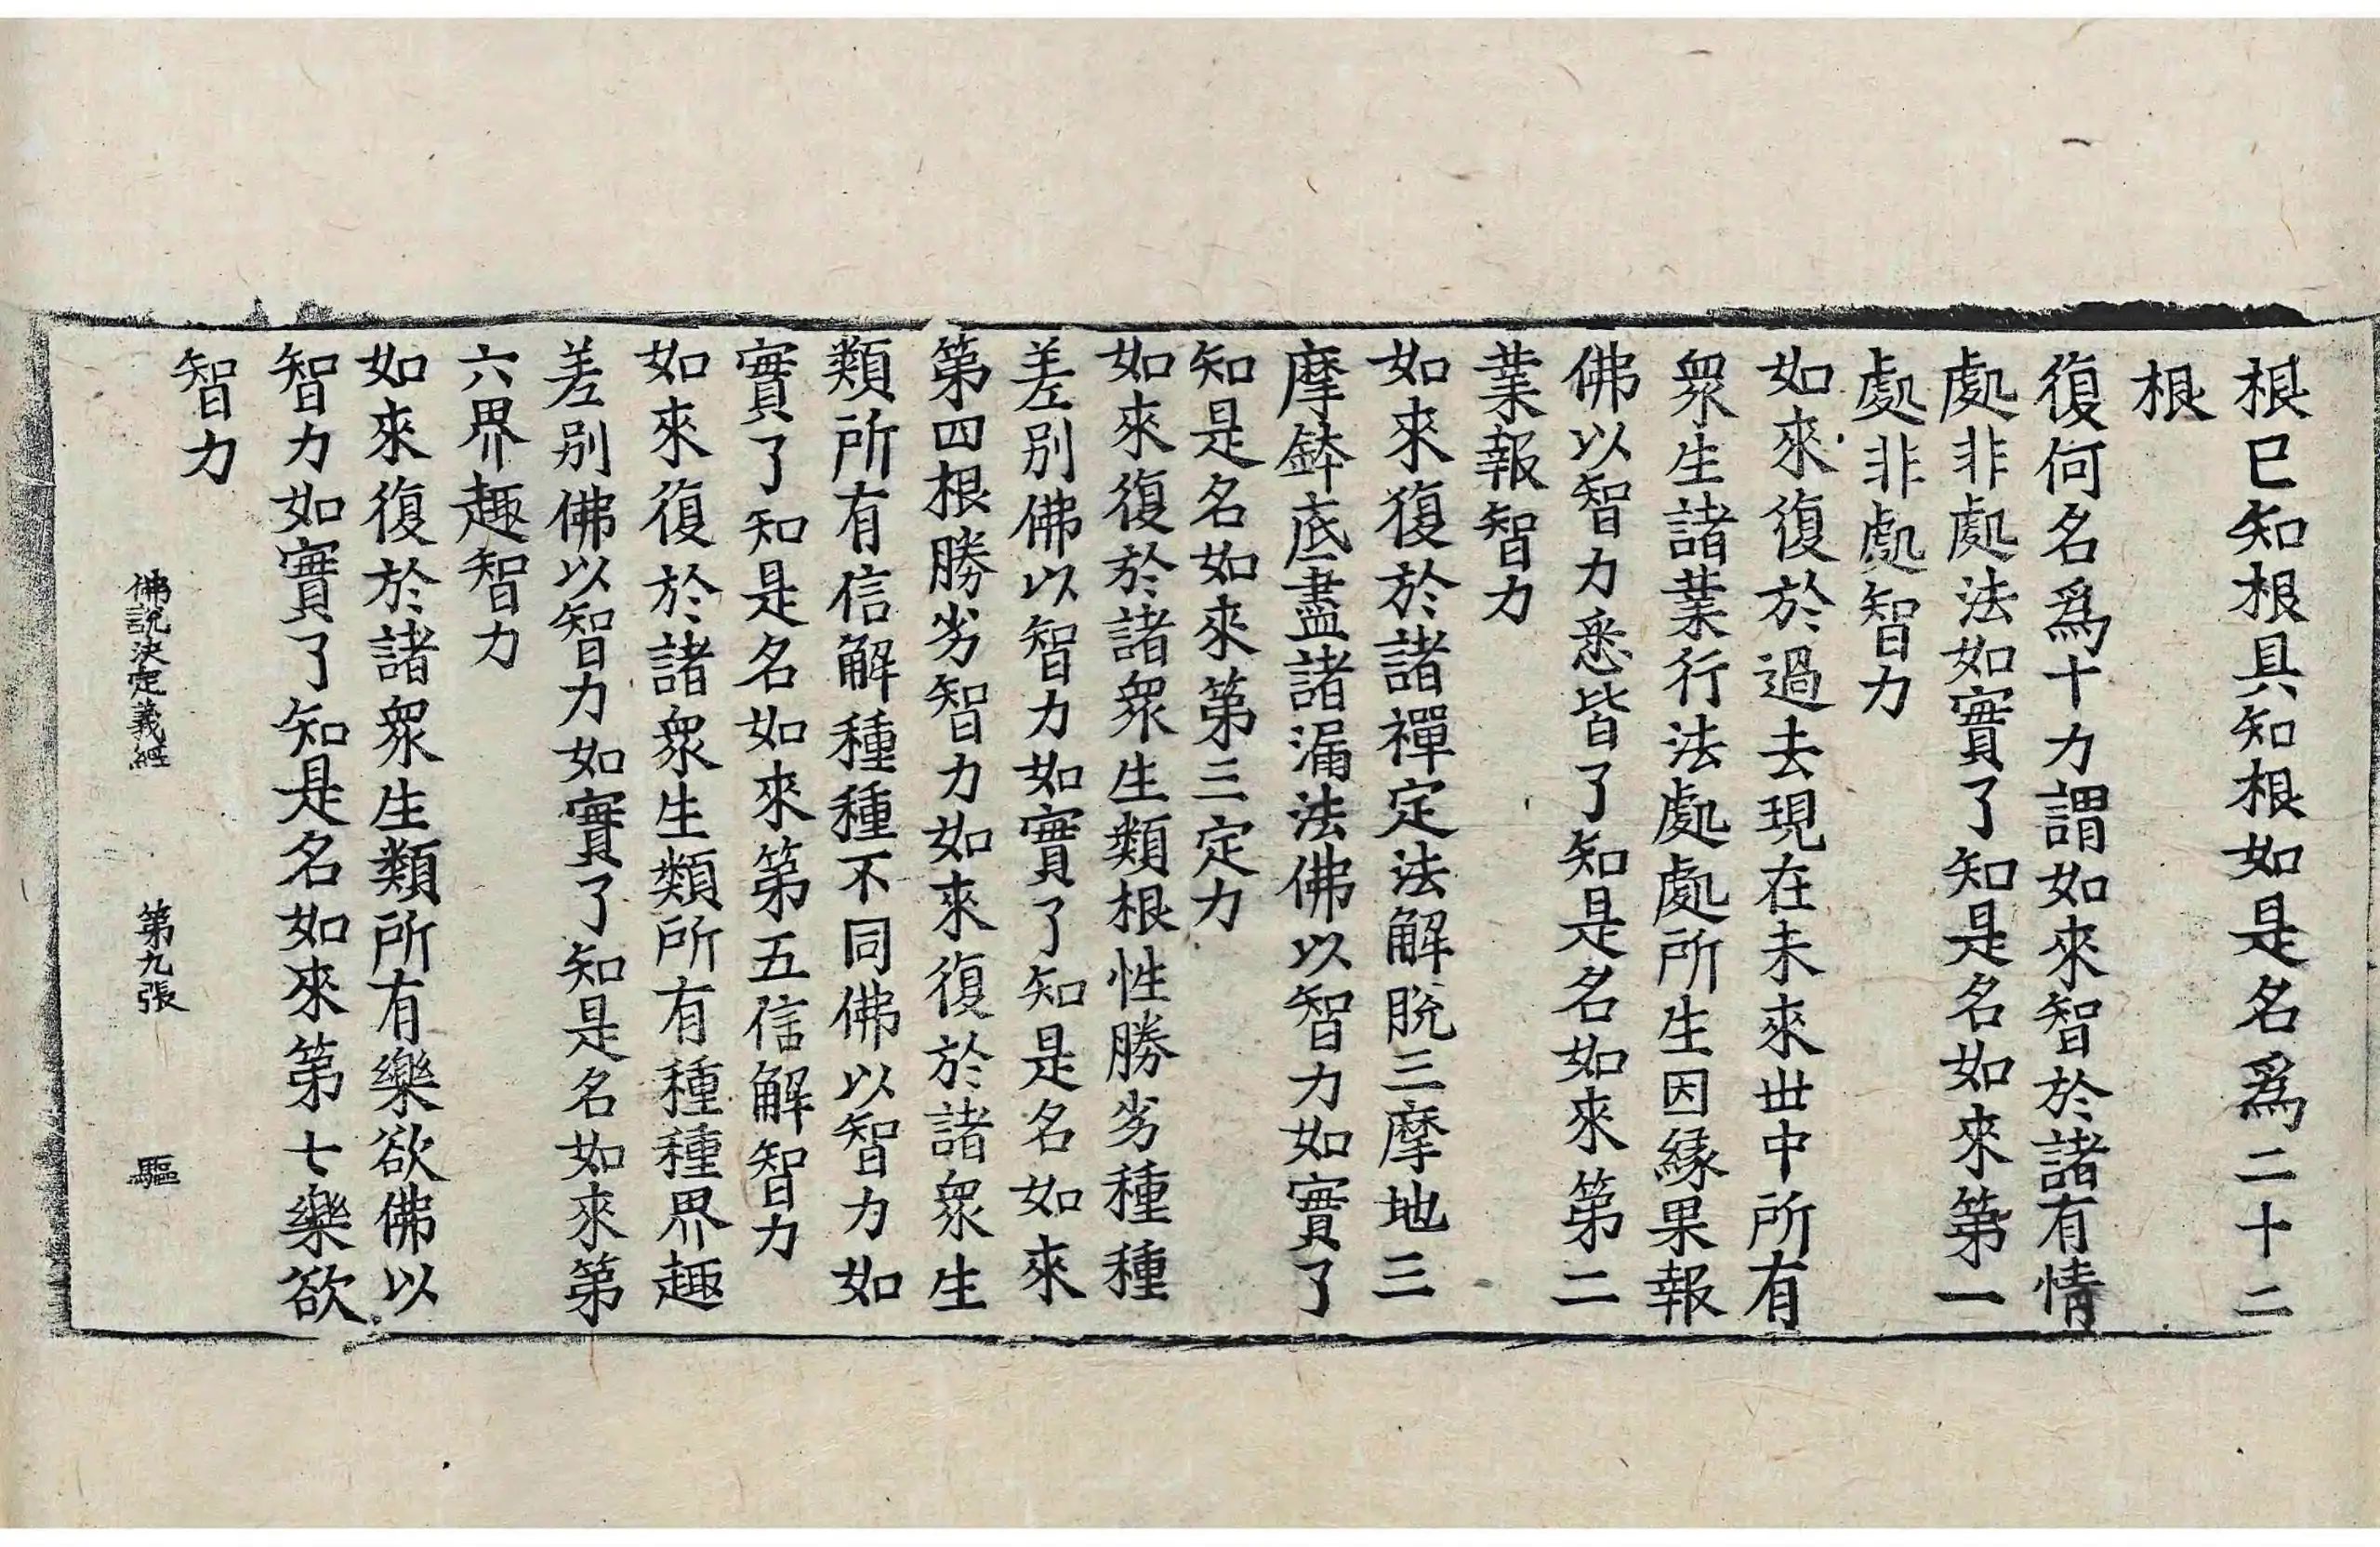 根已知根具知根如是名爲二十二
根
復何名爲十力謂如來智於諸有情
處非處法如實了知是名如來第一
處非處智力
如來復於過去現在未來世中所有
衆生諸業行法處處所生因緣果報
佛以智力悉皆了知是名如來第二
業報智力
如來復於諸禪定法解脫三摩地三
摩鉢底盡諸漏法佛以智力如實了
知是名如來第三定力
如來復於諸衆生類根性勝劣種種
差别佛以智力如實了知是名如來
第四根勝劣智力如來復於諸衆生
類所有信解種種不同佛以智力如
實了知是名如來第五信解智力
如來復於諸衆生類所有種種界趣
差别佛以智力如實了知是名如來第
六界趣智力
如來復於諸衆生類所有樂欲佛以
智力如實了知是名如來第七樂欲
智力
佛說決定義經 第九張 驅